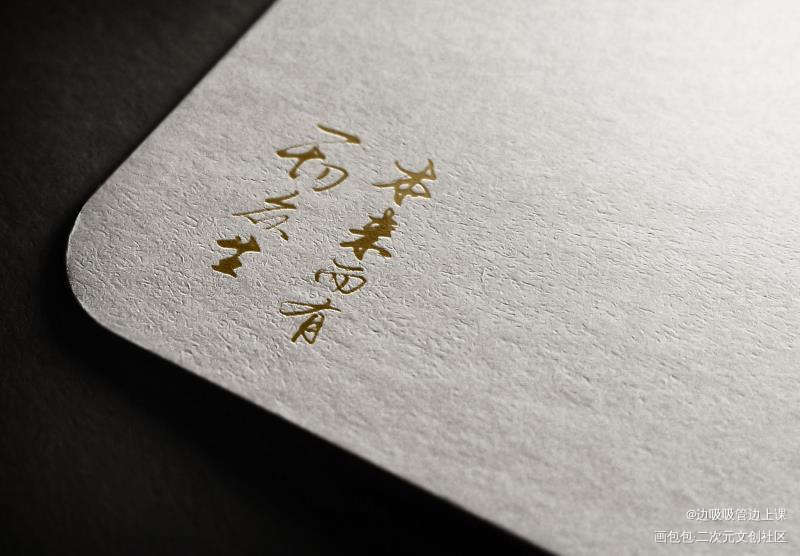 本来而有
一切众生
@边吸吸管边上课
画包包.二次元文创社区